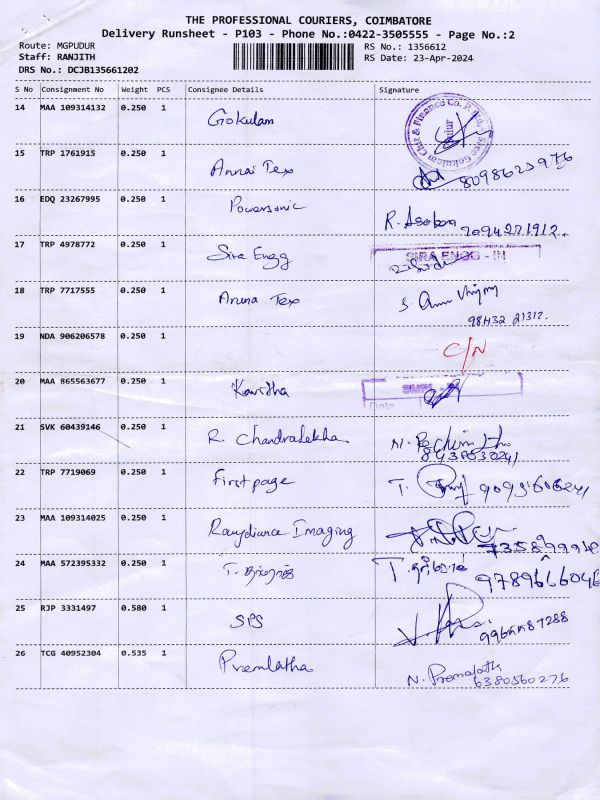 THE PROFESSIONAL COURIERS, COIMBATORE
Delivery Runsheet - P103 - Phone No.:0422-3505555 - Page No.:2
Route: MGPUDUR RS No.: 1356612
Staff: RANJITH RS Date: 23-Apr-2024
DRS No.: DCJB135661202
S No Consignment No Weight PCS Consignee Details Signature
14 MAA 109314132 0.250 1 Gokulam
15 TRP 1761915 0.250 1 Annai Tex
16 EDQ 23267995 0.250 1 Powersonic
R. Asokan 7094271912.
17 TRP 4978772 0.250 1 Sira Engg SIRA ENGG - IN
18 TRP 7717555 0.250 1 Aruna Tex
98432 21312.
19 NDA 906206578 0.250 1 C/N
20 MAA 865563677 0.250 1 Kavitha
Date
21 SVK 60439146 0.250 1 R. Chandralekha
8438030241
22 TRP 7719069 0.250 1 First page T.
23 MAA 109314025 0.250 1 Raydiance Imaging
24 MAA 572395332 0.250 1 T.
25 RJP 3331497 0.580 1 SPS
26 TCG 40952304 0.535 1 Premlatha N. Premalatha
6380560276